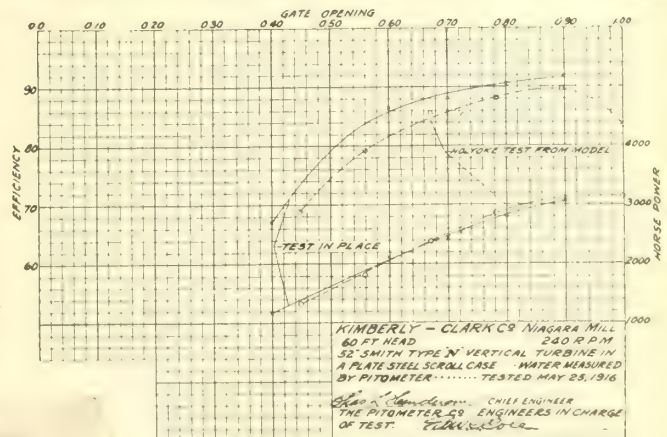 GATE OPENING
0.0 0.10 0.20 0.30 0.40 0.50 0.60 0.70 0.80 0.90 1.00
90
80
70
60
EFFICIENCY
4000
3000
2000
1000
HORSE POWER
HOLYOKE TEST FROM MODEL
TEST IN PLACE
KIMBERLY - CLARK CO NIAGARA MILL
60 FT HEAD 240 R P M
52" SMITH TYPE "N" VERTICAL TURBINE IN
A PLATE STEEL SCROLL CASE · WATER MEASURED
BY PITOMETER ········ TESTED MAY 25, 1916
CHIEF ENGINEER
THE PITOMETER CO ENGINEERS IN CHARGE
OF TEST.